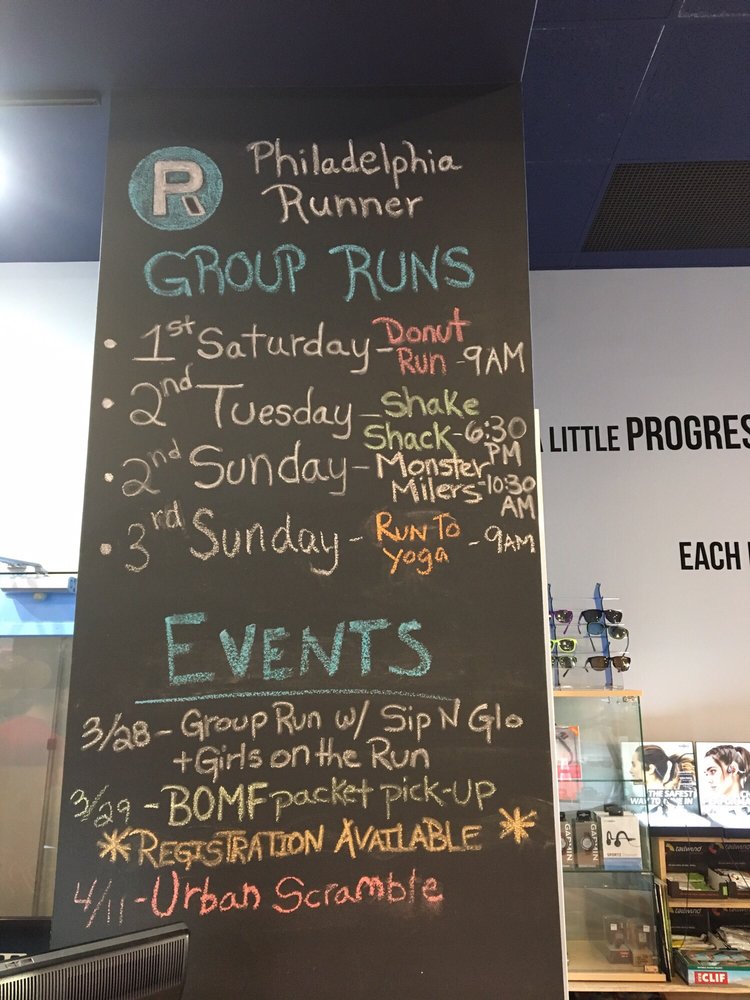 R Philadelphia
Runner
GROUP RUNS
• 1st Saturday - Donut Run - 9AM
• 2nd Tuesday - Shake Shack - 6:30 PM
• 2nd Sunday - Monster Milers - 10:30 AM
• 3rd Sunday - Run To Yoga - 9AM
EVENTS
3/28 - Group Run w/ Sip N Glo
+ Girls on the Run
3/29 - BOMF packet pick-up
*REGISTRATION AVAILABLE*
4/11 - Urban Scramble
A LITTLE PROGRES
EACH
THE SAFEST
WAY TO
GARMIN
tailwind
tailwind
CLIF